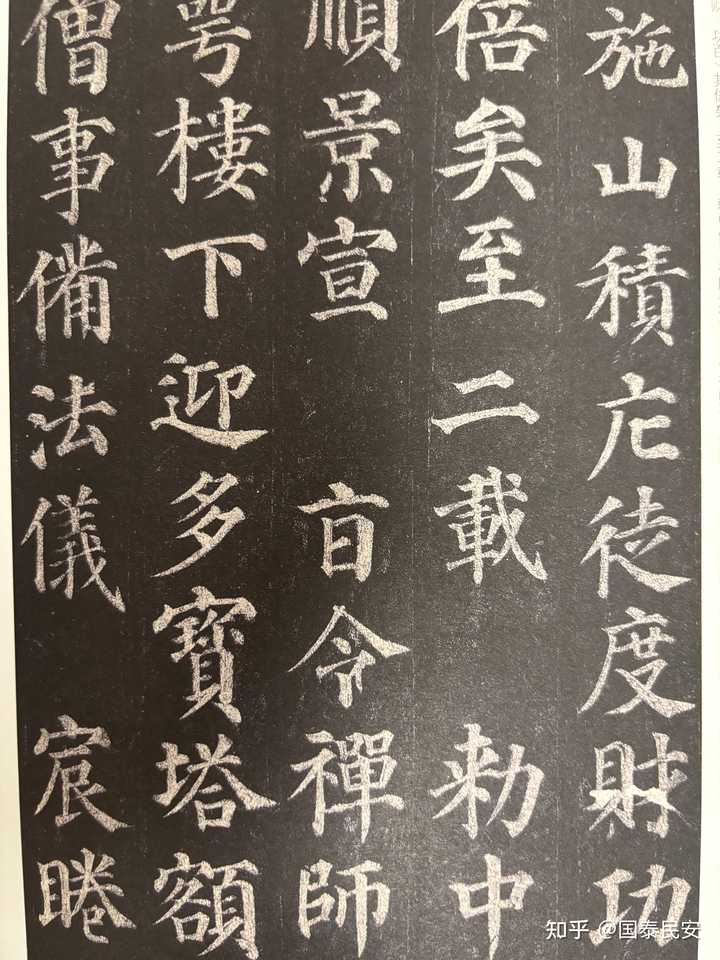 施山積庀徒度財功
倍矣至二載 勅中
順景宣 旨令禪師
萼樓下迎多寶塔額
僧事備法儀 宸睠
知乎 @国泰民安